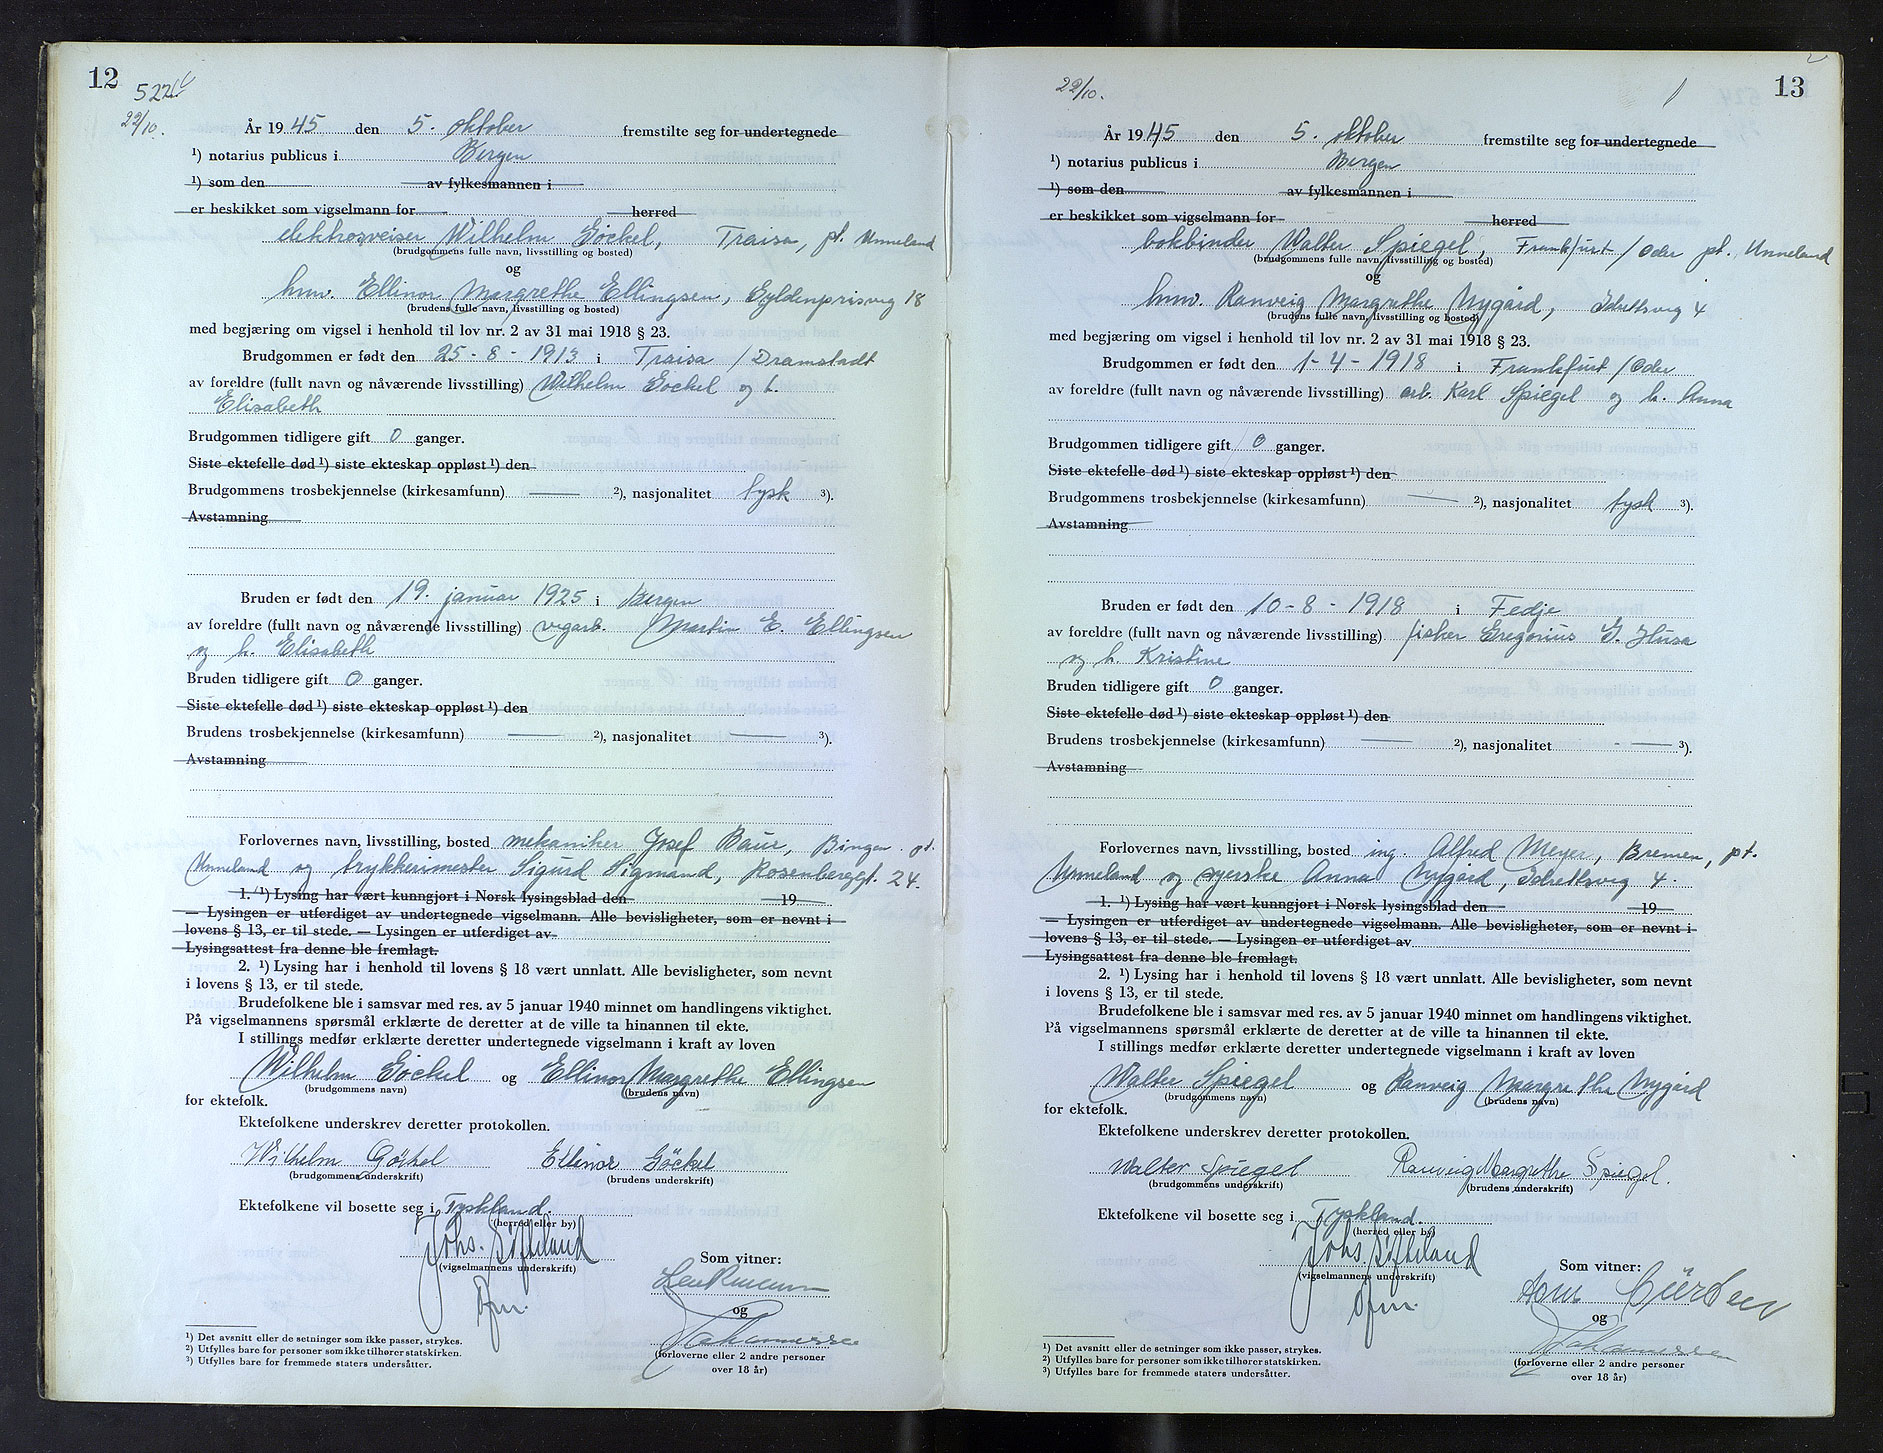 12
522
22/10.
År 1945 den 5. oktober fremstilte seg for undertegnede
¹) notarius publicus i Bergen
¹) som den av fylkesmannen i
er beskikket som vigselmann for herred
elektrosveiser Wilhelm Göckel, Traisa, pt. Unneland
(brudgommens fulle navn, livsstilling og bosted)
og
hmv. Ellinor Margrethe Ellingsen, Gyldenprisveg 18
(brudens fulle navn, livsstilling og bosted)
med begjæring om vigsel i henhold til lov nr. 2 av 31 mai 1918 § 23.
Brudgommen er født den 25-8-1913 i Traisa / Dramstadt
av foreldre (fullt navn og nåværende livsstilling) Wilhelm Göckel og h.
Elisabeth
Brudgommen tidligere gift 0 ganger.
Siste ektefelle død ¹) siste ekteskap oppløst ¹) den
Brudgommens trosbekjennelse (kirkesamfunn) — ²), nasjonalitet tysk ³).
Avstamning
Bruden er født den 19. januar 1925 i Bergen
av foreldre (fullt navn og nåværende livsstilling) vegarb. Martin E. Ellingsen
og h. Elisabeth
Bruden tidligere gift 0 ganger.
Siste ektefelle død ¹) siste ekteskap oppløst ¹) den
Brudens trosbekjennelse (kirkesamfunn) — ²), nasjonalitet — ³).
Avstamning
Forlovernes navn, livsstilling, bosted mekaniker Josef Baur, Bingen pt.
Unneland og trykkerimester Sigurd Sigmand, Rosenberggt. 24.
1. ¹) Lysing har vært kunngjort i Norsk lysingsblad den 19
— Lysingen er utferdiget av undertegnede vigselmann. Alle bevisligheter, som er nevnt i
lovens § 13, er til stede. — Lysingen er utferdiget av
Lysingsattest fra denne ble fremlagt.
2. ¹) Lysing har i henhold til lovens § 18 vært unnlatt. Alle bevisligheter, som nevnt
i lovens § 13, er til stede.
Brudefolkene ble i samsvar med res. av 5 januar 1940 minnet om handlingens viktighet.
På vigselmannens spørsmål erklærte de deretter at de ville ta hinannen til ekte.
I stillings medfør erklærte deretter undertegnede vigselmann i kraft av loven
Wilhelm Göckel og Ellinor Margrethe Ellingsen
(brudgommens navn) (brudens navn)
for ektefolk.
Ektefolkene underskrev deretter protokollen.
Wilhelm Göckel Ellinor Göckel
(brudgommens underskrift) (brudens underskrift)
Ektefolkene vil bosette seg i Tyskland.
(herred eller by)
Johs. Søfteland
(vigselmannens underskrift)
Som vitner:
og
Johannessen
(forloverne eller 2 andre personer
over 18 år)
¹) Det avsnitt eller de setninger som ikke passer, strykes.
²) Utfylles bare for personer som ikke tilhører statskirken.
³) Utfylles bare for fremmede staters undersåtter.
13
22/10.
År 1945 den 5. oktober fremstilte seg for undertegnede
¹) notarius publicus i Bergen
¹) som den av fylkesmannen i
er beskikket som vigselmann for herred
bokbinder Walter Spiegel, Frankfurt / Oder pt. Unneland
(brudgommens fulle navn, livsstilling og bosted)
og
hmv. Ranveig Margrethe Nygård, Idrettsveg 4
(brudens fulle navn, livsstilling og bosted)
med begjæring om vigsel i henhold til lov nr. 2 av 31 mai 1918 § 23.
Brudgommen er født den 1-4-1918 i Frankfurt / Oder
av foreldre (fullt navn og nåværende livsstilling) arb. Karl Spiegel og h. Anna
Brudgommen tidligere gift 0 ganger.
Siste ektefelle død ¹) siste ekteskap oppløst ¹) den
Brudgommens trosbekjennelse (kirkesamfunn) — ²), nasjonalitet tysk ³).
Avstamning
Bruden er født den 10-8-1918 i Fedje
av foreldre (fullt navn og nåværende livsstilling) fisker Gregorius G. Husa
og h. Kristine
Bruden tidligere gift 0 ganger.
Siste ektefelle død ¹) siste ekteskap oppløst ¹) den
Brudens trosbekjennelse (kirkesamfunn) — ²), nasjonalitet — ³).
Avstamning
Forlovernes navn, livsstilling, bosted ing. Alfred Meyer, Bremen, pt.
Unneland og syerske Anna Nygård, Idrettsveg 4.
1. ¹) Lysing har vært kunngjort i Norsk lysingsblad den 19
— Lysingen er utferdiget av undertegnede vigselmann. Alle bevisligheter, som er nevnt i
lovens § 13, er til stede. — Lysingen er utferdiget av
Lysingsattest fra denne ble fremlagt.
2. ¹) Lysing har i henhold til lovens § 18 vært unnlatt. Alle bevisligheter, som nevnt
i lovens § 13, er til stede.
Brudefolkene ble i samsvar med res. av 5 januar 1940 minnet om handlingens viktighet.
På vigselmannens spørsmål erklærte de deretter at de ville ta hinannen til ekte.
I stillings medfør erklærte deretter undertegnede vigselmann i kraft av loven
Walter Spiegel og Ranveig Margrethe Nygård
(brudgommens navn) (brudens navn)
for ektefolk.
Ektefolkene underskrev deretter protokollen.
Walter Spiegel Ranveig Margrethe Spiegel.
(brudgommens underskrift) (brudens underskrift)
Ektefolkene vil bosette seg i Tyskland.
(herred eller by)
Johs Søfteland
(vigselmannens underskrift)
Som vitner:
og
Johannessen
(forloverne eller 2 andre personer
over 18 år)
¹) Det avsnitt eller de setninger som ikke passer, strykes.
²) Utfylles bare for personer som ikke tilhører statskirken.
³) Utfylles bare for fremmede staters undersåtter.